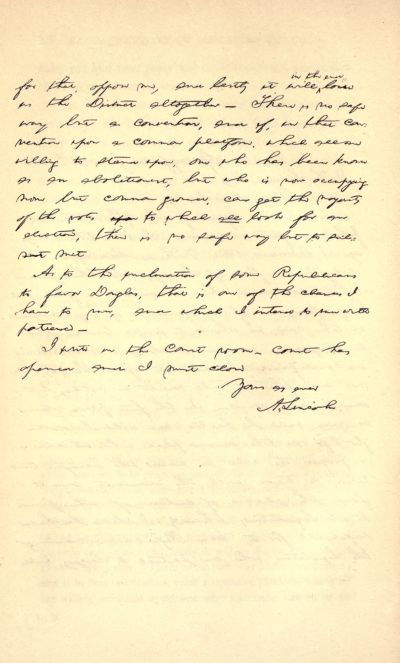 for that, oppose me, and lastly it will in the end lose
us the District altogether — There is no safe
way but a convention, and if, in that con-
vention upon a common platform, which all are
willing to stand upon, one who has been known
as an abolitionist, but who is now occupying
none but common ground, can get the majority
of the votes to which all look for an
election, there is no safe way but to sub-
mit
As to the inclination of some Republicans
to favor Douglas, that is one of the chances I
have to run, and which I intend to run with
patience —
I write in the court room — Court has
opened and I must close
Yours as ever
A. Lincoln